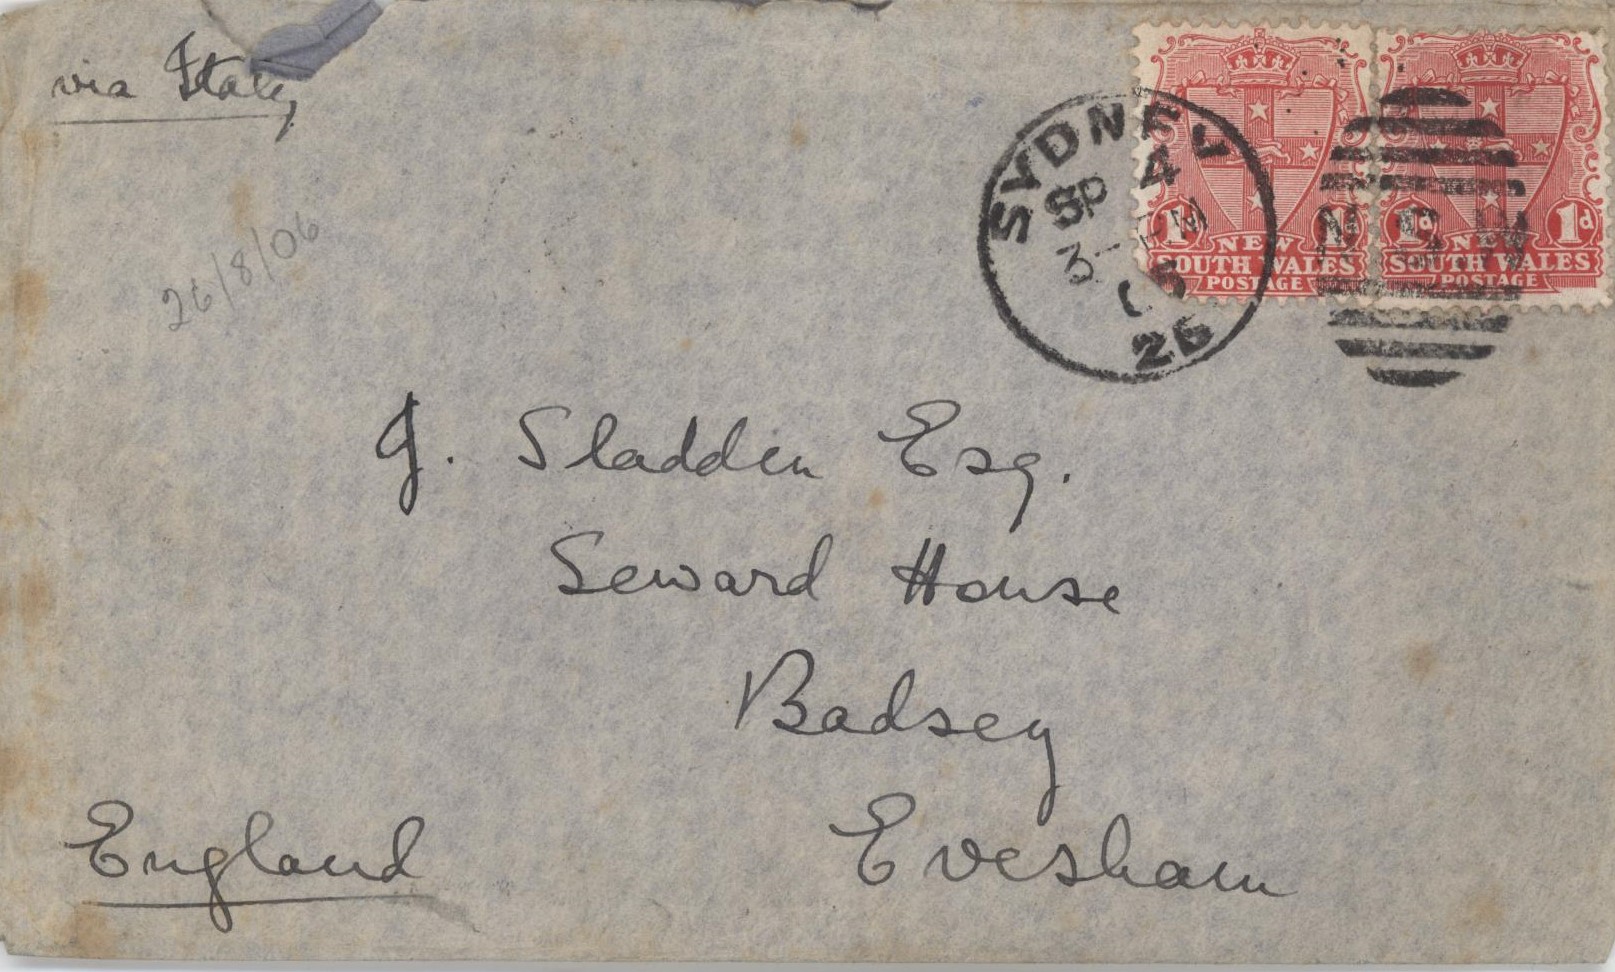 via Italy
26/8/06
SYDNEY
SP 4
3-PM
06
26
N.S.W
1d NEW 1d
SOUTH WALES
POSTAGE
1d NEW 1d
SOUTH WALES
POSTAGE
J. Sladden Esq.
Seward House
Badsey
Evesham
England